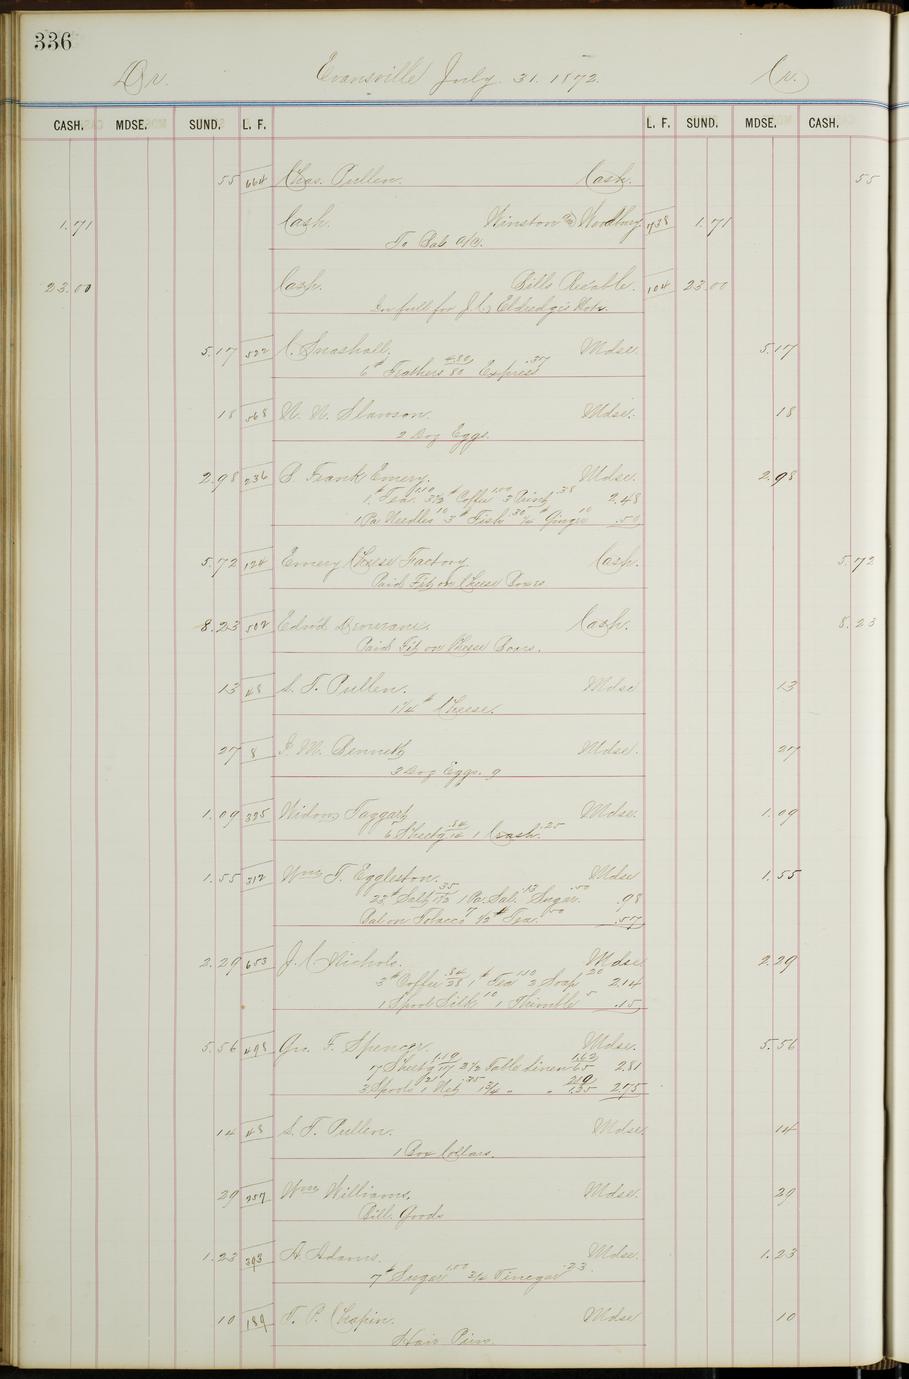 336
Dr. Evansville July 31. 1872. Cr.
CASH. MDSE. SUND. L. F. L. F. SUND. MDSE. CASH.
55 664 Chas. Pullen. Cash. 55
1.71 Cash. Winston & Woodbury 738 1.71
To Bal a/c.
23.00 Cash. Bills Recable. 104 23.00
In full for J. C. Eldredge's Note.
5.17 522 C. Snashall. Mdse. 5.17
6 # Feathers 4.80/80 Express .37
18 568 Slawson. Mdse. 18
2 Doz Eggs.
2.98 236 Frank Emery. Mdse. 2.98
1 # Tea 1.10 3½ # Coffee 1.00 3 .38 2.48
1 Pa Needles 10 3 # Fish .30 ¼ # Ginger 10 .50
5.72 124 Emery Cheese Factory Cash. 5.72
Paid on Cheese Boxes
8.23 502 Edw'd Cash. 8.23
Paid on Cheese Boxes.
13 48 S. T. Pullen. Mdse 13
1¼ # Cheese.
27 8 M. Bennett Mdse. 27
3 Doz Eggs. 9
1.09 325 Widow Taggart Mdse. 1.09
6 Sheetg .84/14 1 .25
1.55 312 Wm T. Eggleston. Mdse 1.55
23 # Salt .35/1½ 1 Pa. Sal. .13 Sugar .50 .98
Bal on Tobacco 7 ½ # Tea .50 .57
2.29 653 J. C. Nichols. Mdse 2.29
3 # Coffee .84/28 1 # Tea 1.10 2 Soap 20 2.14
1 Spool Silk 10 1 Thimble 5 .15
5.56 498 Geo. F. Spencer. Mdse. 5.56
7 Sheetg 1.19/17 2½ Table Linen 1.62/65 2.81
3 Spools 1 Net .35 2.75
14 48 S. T. Pullen. Mdse. 14
1 Box Collars.
29 257 Wm Williams. Mdse. 29
Bill Goods
1.23 303 A. Adams. Mdse. 1.23
7 # Sugar 1.00 ¾ Vinegar .23
10 189 T. P. Chapin. Mdse 10
Hair Pins.